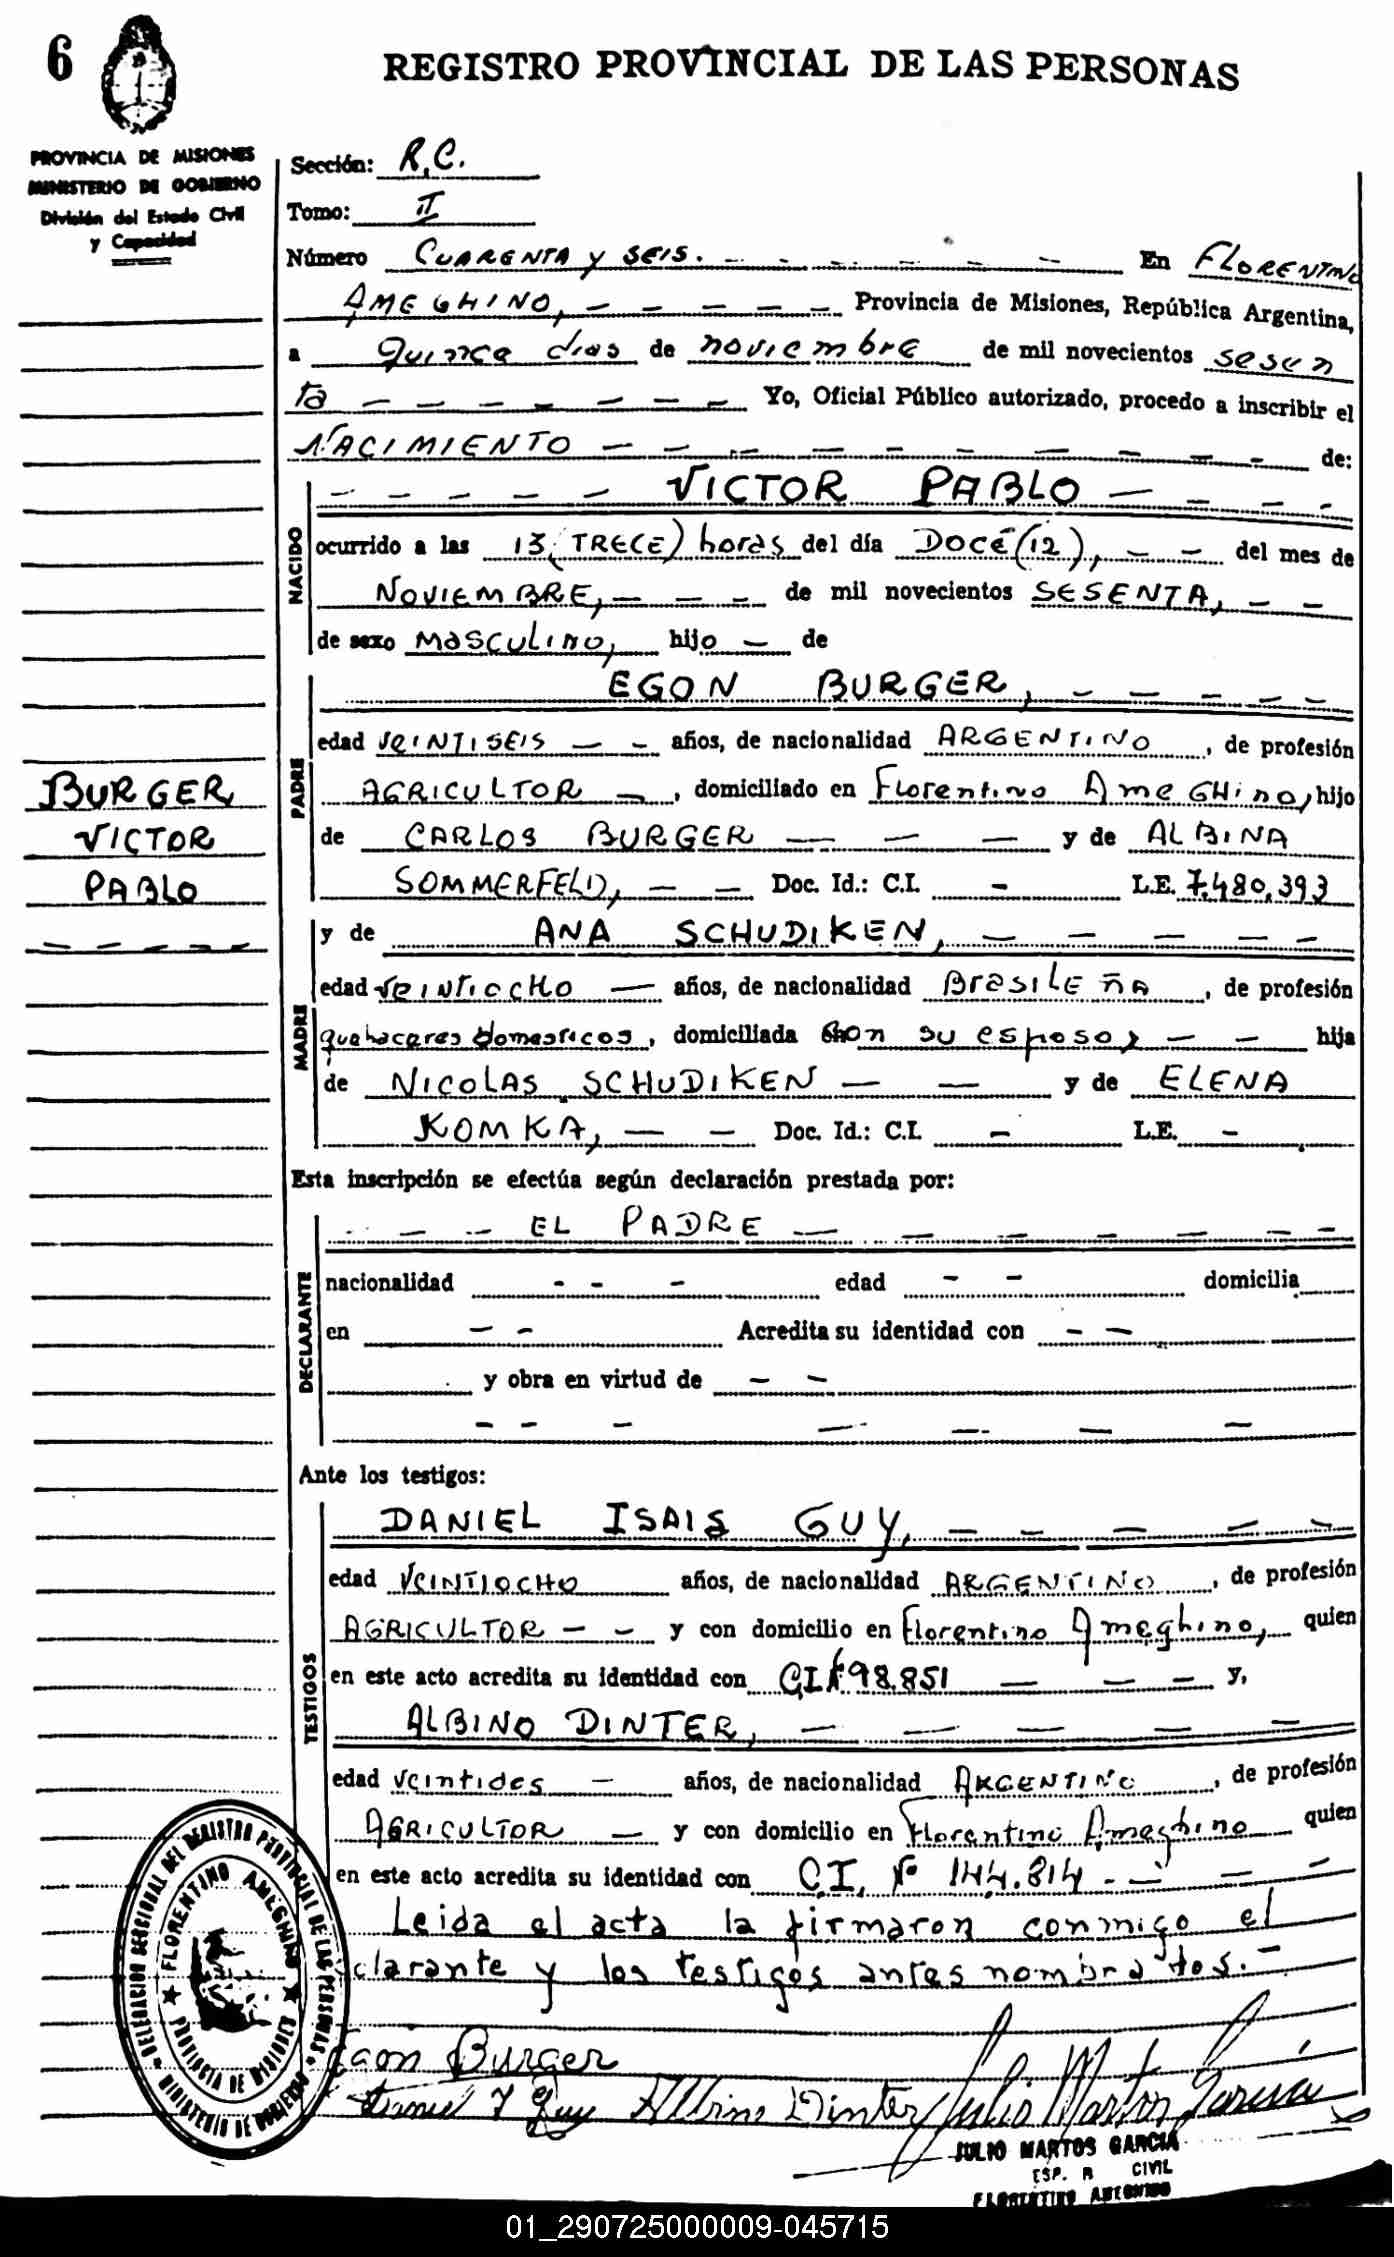 6
REGISTRO PROVINCIAL DE LAS PERSONAS
PROVINCIA DE MISIONES
MINISTERIO DE GOBIERNO
División del Estado Civil
y Capacidad
Sección: R.C.
Tomo: II
Número CUARENTA y SEIS. - - - - - - En FLORENTINO
AMEGHINO, - - - - - - Provincia de Misiones, República Argentina,
a quince dias de noviembre de mil novecientos sesen
ta - - - - - - - - Yo, Oficial Público autorizado, procedo a inscribir el
NACIMIENTO - - - - - - - - - - de:
NACIDO
- - - - - VICTOR PABLO - - - -
ocurrido a las 13 (TRECE) horas del día DOCE (12), - - del mes de
NOVIEMBRE, - - - de mil novecientos SESENTA, - -
de sexo MASCULINO, hijo - de
PADRE
EGON BURGER, - - - - - -
edad VEINTISEIS - - años, de nacionalidad ARGENTINO, de profesión
AGRICULTOR -, domiciliado en Florentino AmeGHino, hijo
de CARLOS BURGER - - - - y de ALBINA
SOMMERFELD, - - Doc. Id.: C.I. - L.E. 7.480.393
BURGER
VICTOR
PABLO
- - - - -
MADRE
y de ANA SCHUDIKEN, - - - - -
edad VEINTIOCHO - años, de nacionalidad BrasiLEñA, de profesión
quehaceres domesticos, domiciliada con su esposo, - - hija
de NICOLAS SCHUDIKEN - - y de ELENA
KOMKA, - - Doc. Id.: C.I. - L.E. -
Esta inscripción se efectúa según declaración prestada por:
DECLARANTE
- - - EL PADRE - - - - - - -
nacionalidad - - - edad - - domicilia
en - - Acredita su identidad con - -
y obra en virtud de - -
- - - - - - -
Ante los testigos:
TESTIGOS
DANIEL ISAIS GUY, - - - - -
edad VEINTIOCHO años, de nacionalidad ARGENTINO, de profesión
AGRICULTOR - - y con domicilio en Florentino Ameghino, quien
en este acto acredita su identidad con C.I. 98.851 - - - y,
ALBINO DINTER, - - - - -
edad veintidos - años, de nacionalidad ARGENTINO, de profesión
AGRICULTOR - y con domicilio en Florentino Ameghino quien
en este acto acredita su identidad con C.I. Nº 144.814 - - - -
Leida el acta la firmaron conmigo el
clarante y los testigos antes nombrados. -
DELEGACION SECCIONAL DEL REGISTRO PROVINCIAL DE LAS PERSONAS
MINISTERIO DE GOBIERNO
FLORENTINO AMEGHINO
PROVINCIA DE MISIONES
Egon Burger
Daniel I Guy Albino Dinter Julio Martos Garcia
JULIO MARTOS GARCIA
CIVIL
FLORENTINO AMEGHINO
01_290725000009-045715